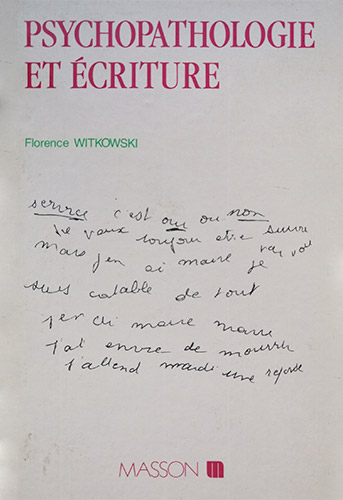 PSYCHOPATHOLOGIE
ET ÉCRITURE
Florence WITKOWSKI
service c'est oui ou non
je veux toujour etre suivre
mais j'en ai marre je
suis catable de tout
j'en ai marre marre
j'ai envie de mourrir
j'attend mardi une
MASSON m